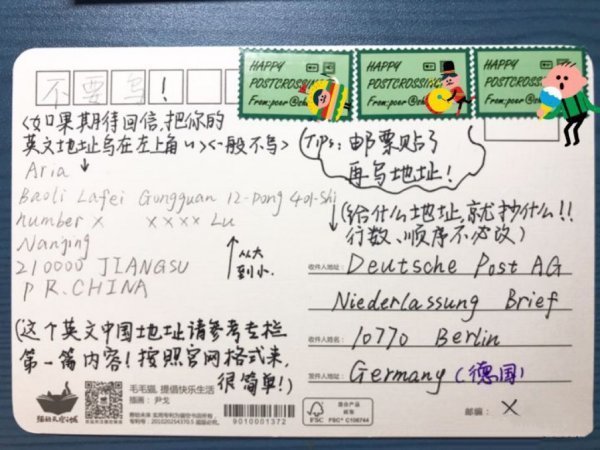 不要写！
HAPPY POSTCROSSING
From: peer @ch
HAPPY POSTCROSSING
From: peer @ch
HAPPY POSTCROSSING
From: peer @ch
<如果期待回信,把你的
英文地址写在左上角↓><一般不写>
(Tips: 邮票贴了
再写地址！
Aria
Baoli Lafei Gongguan 12-Dong 401-Shi
number × ×××× Lu
Nanjing
210000 JIANGSU
P R.CHINA
从大
到小.
(给什么地址,就抄什么!!
行数、顺序不必改)
收件人地址:
Deutsche Post AG
Niederlassung Brief
收件人姓名:
10770 Berlin
发件人地址:
Germany (德国)
邮编: ×
(这个英文中国地址请参考专栏
第一篇内容！按照官网格式来,
很简单!)
毛毛猫, 提倡快乐生活
插画：尹戈
9010001372
混合产品
纸张
FSC
FSC® C106744